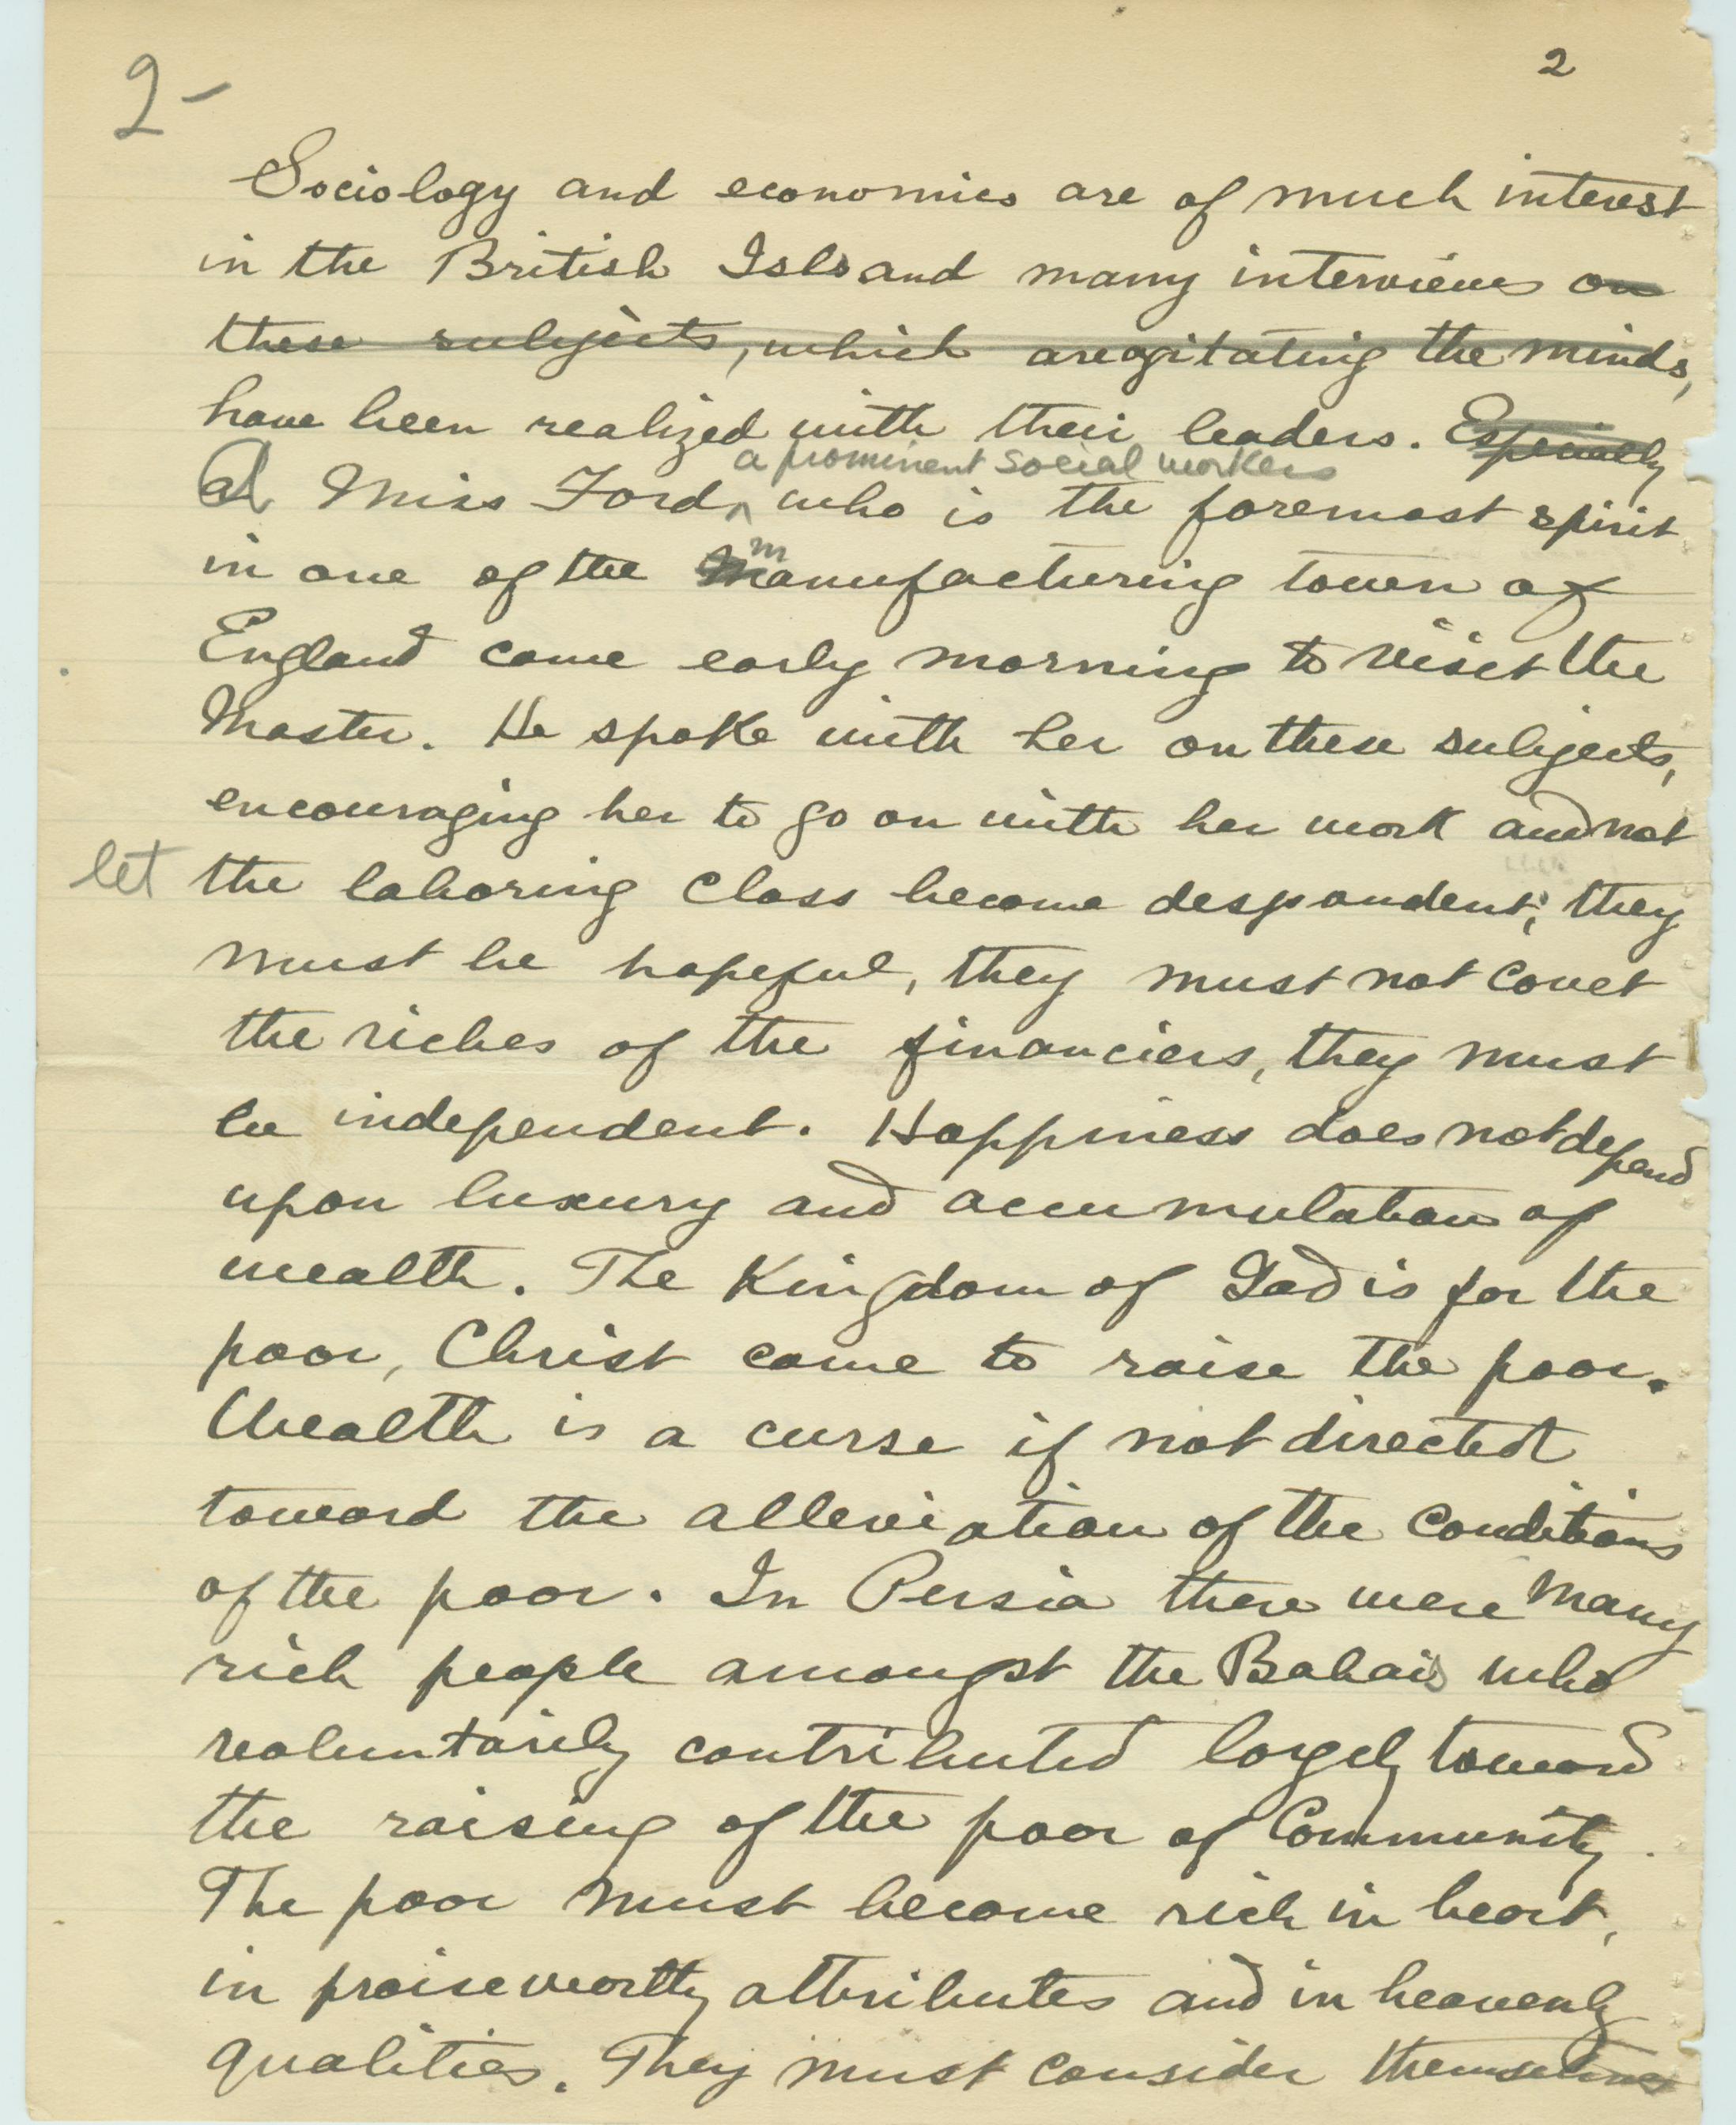 2-
2
Sociology and economics are of much interest
in the British Isls and many interviews on
these subjects, which are agitating the minds,
have been realized with their leaders. Especially
a prominent social workers
A Miss Ford, who is the foremost spirit
in one of the manufacturing town of
England came early morning to visit the
Master. He spoke with her on these subjects,
encouraging her to go on with her work and not
let the laboring class become despondent; they
must be hopeful, they must not covet
the riches of the financiers, they must
be independent. Happiness does not depend
upon luxury and accumulation of
wealth. The Kingdom of God is for the
poor, Christ came to raise the poor.
Wealth is a curse if not directed
toward the alleviation of the conditions
of the poor. In Persia there were many
rich people amongst the Bahais who
voluntarily contributed largely toward
the raising of the poor of Community.
The poor must become rich in heart,
in praiseworthy attributes and in heavenly
qualities. They must consider themselves